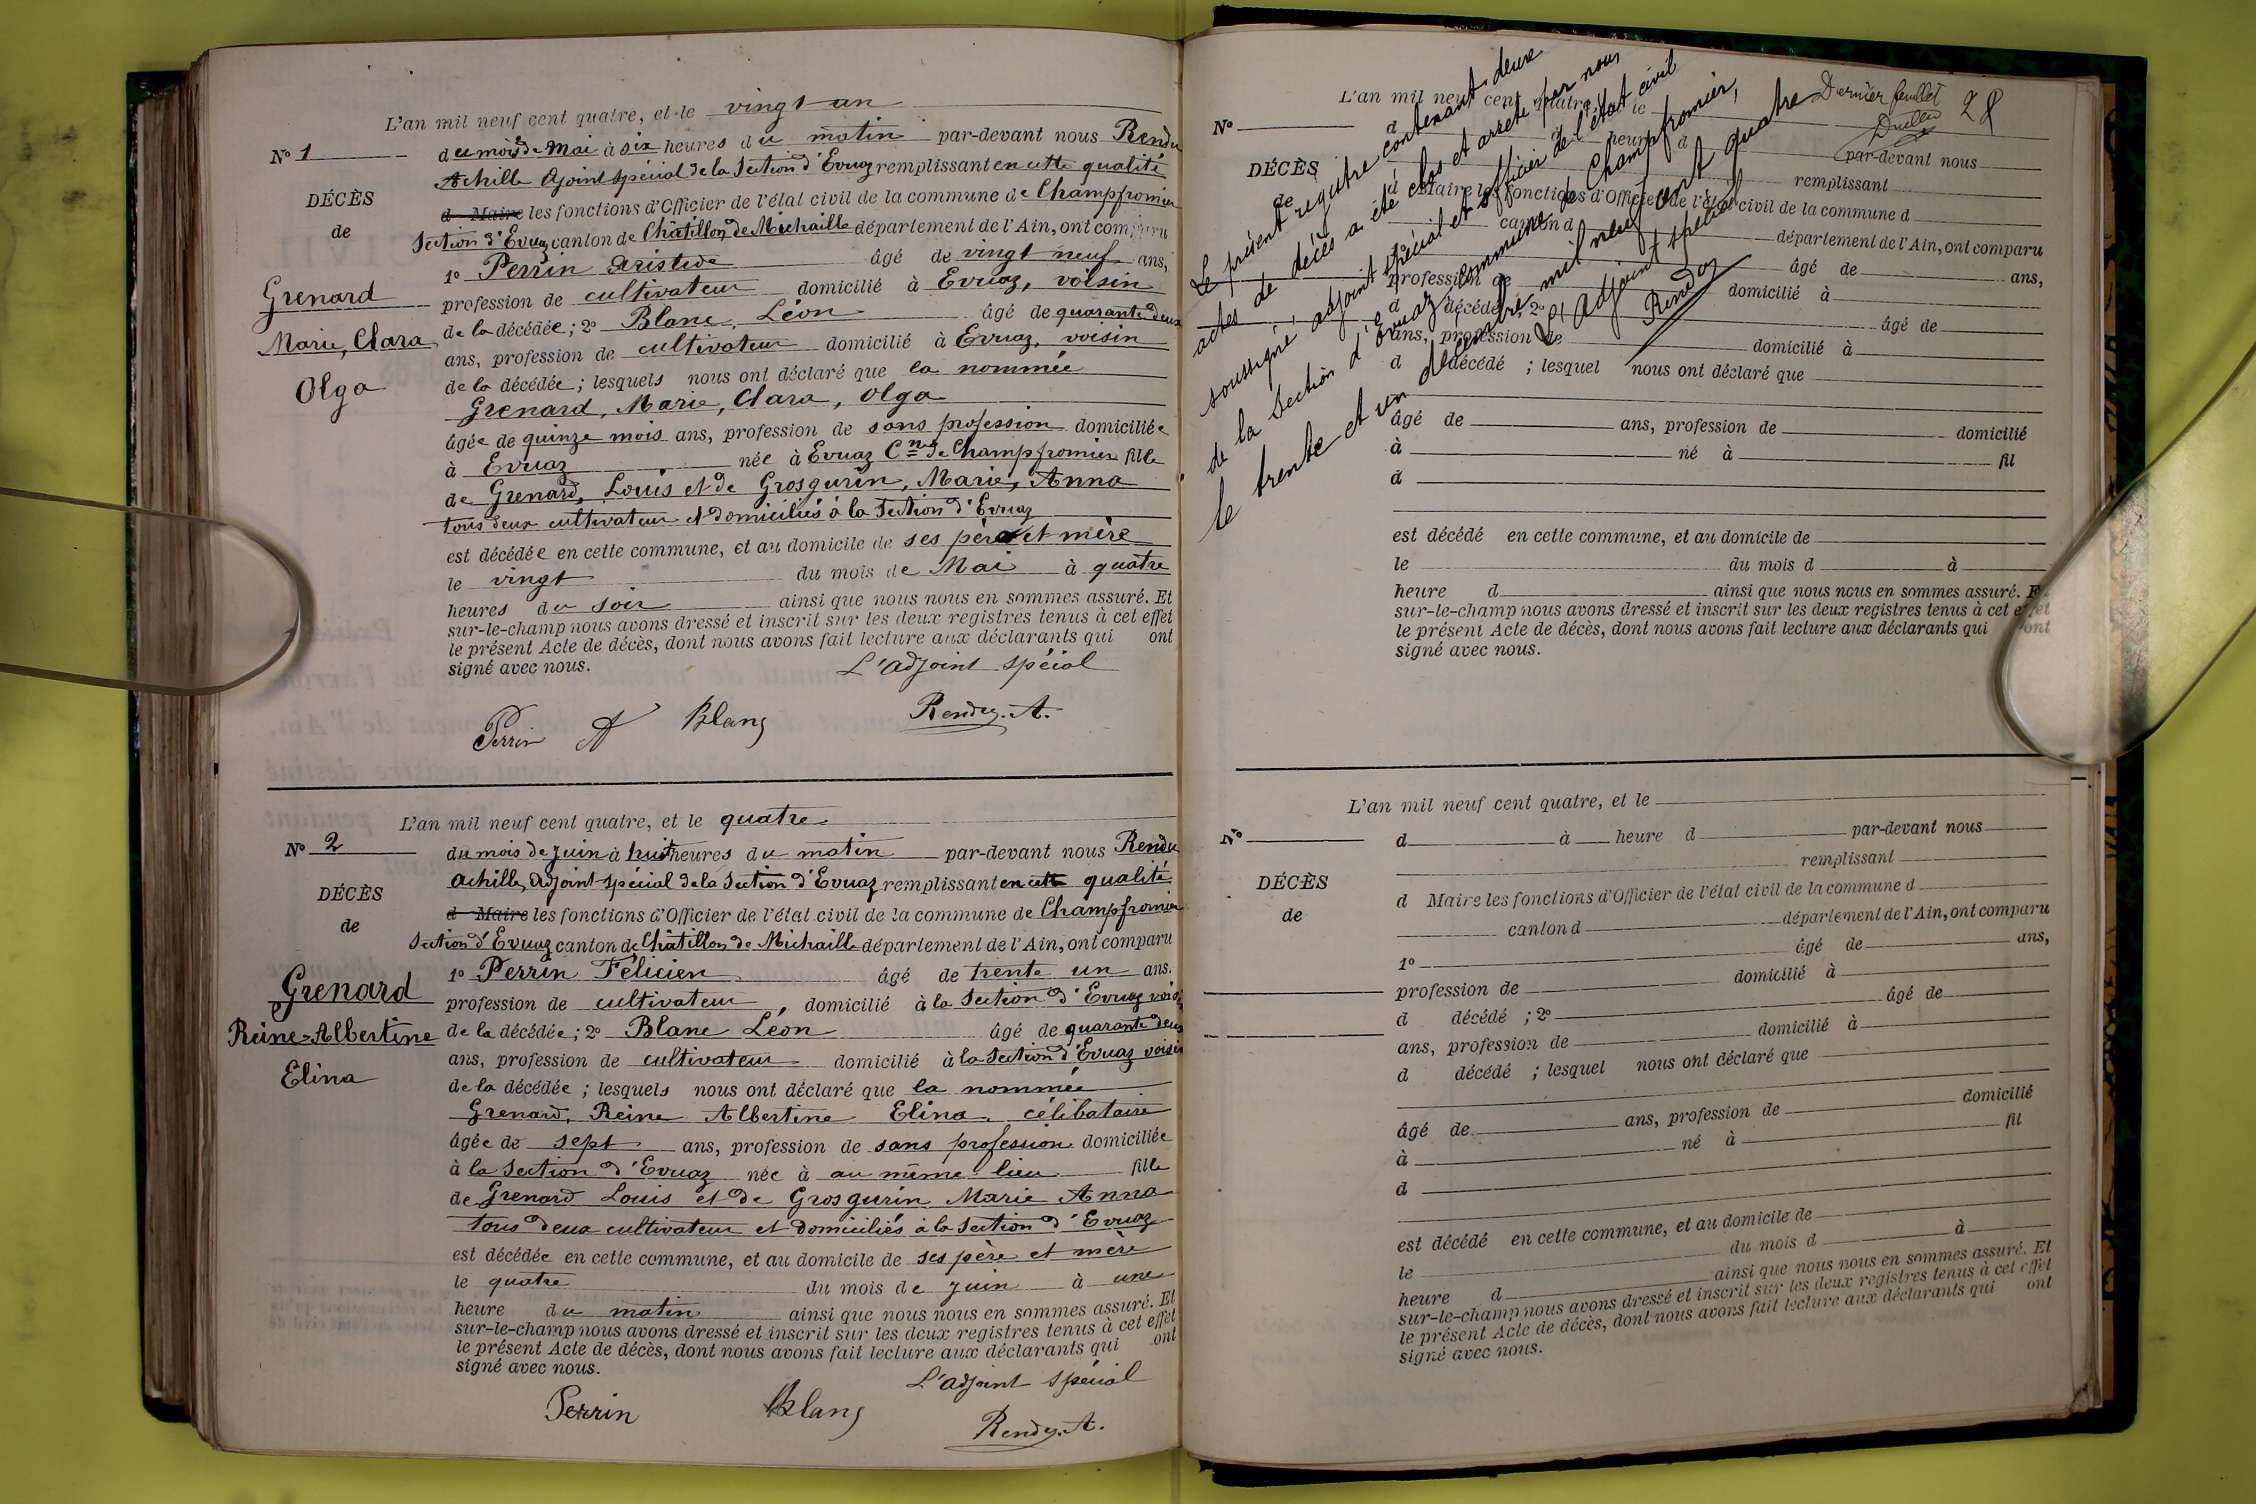 L'an mil neuf cent quatre, et le vingt un
N° 1
du mois de Mai à six heures du matin par-devant nous Rendu
Achille Ajoint spécial de la Section d'Evuaz remplissant en cette qualité
DÉCÈS
d Maire les fonctions d'Officier de l'état civil de la commune de Champfromier
de
Section d'Evuaz canton de Châtillon de Michaille département de l'Ain, ont comparu
1° Perrin Aristide âgé de vingt neuf ans,
Grenard
profession de cultivateur domicilié à Evuaz, voisin
de la décédée; 2° Blanc, Léon âgé de quarante deux
Marie, Clara
ans, profession de cultivateur domicilié à Evuaz, voisin
Olga
de la décédée; lesquels nous ont déclaré que la nommée
Grenard, Marie, Clara, Olga
âgée de quinze mois ans, profession de sans profession domiciliée
à Evuaz née à Evuaz Cne de Champfromier fille
de Grenard, Louis et de Grosgurin, Marie, Anna
tous deux cultivateur et domiciliés à la Section d'Evuaz
est décédée en cette commune, et au domicile de ses père et mère
le vingt du mois de Mai à quatre
heures du soir ainsi que nous nous en sommes assuré. Et
sur-le-champ nous avons dressé et inscrit sur les deux registres tenus à cet effet
le présent Acte de décès, dont nous avons fait lecture aux déclarants qui ont
signé avec nous.
L'adjoint spécial
Perrin A Blanc Rendu. A.
L'an mil neuf cent quatre, et le quatre
N° 2
du mois de Juin à huit heures du matin par-devant nous Rendu
Achille, adjoint spécial de la Section d'Evuaz remplissant en cette qualité
DÉCÈS
d Maire les fonctions d'Officier de l'état civil de la commune de Champfromier
de
Section d'Evuaz canton de Châtillon de Michaille département de l'Ain, ont comparu
1° Perrin Félicien âgé de trente un ans.
Grenard
profession de cultivateur, domicilié à la Section d'Evuaz voisin
Reine-Albertine
de la décédée; 2° Blanc Léon âgé de quarante deux
ans, profession de cultivateur domicilié à la Section d'Evuaz voisin
Elina
de la décédée; lesquels nous ont déclaré que la nommée
Grenard, Reine Albertine Elina, célibataire
âgée de sept ans, profession de sans profession domiciliée
à la Section d'Evuaz née à au même lieu fille
de Grenard Louis et de Grosgurin Marie Anna
tous deux cultivateur et domiciliés à la Section d'Evuaz
est décédée en cette commune, et au domicile de ses père et mère
le quatre du mois de Juin à une
heure du matin ainsi que nous nous en sommes assuré. Et
sur-le-champ nous avons dressé et inscrit sur les deux registres tenus à cet effet
le présent Acte de décès, dont nous avons fait lecture aux déclarants qui ont
signé avec nous.
L'adjoint spécial
Perrin Blanc Rendu. A.
Dernier feuillet
28
Le présent registre contenant deux
actes de décès a été clos et arrêté par nous
soussigné adjoint spécial et officier de l'état civil
de la Section d'Evuaz, commune de Champfromier,
le trente et un décembre mil neuf cent quatre
L'adjoint spécial
Rendu
L'an mil neuf cent quatre, et le
N°
d à heure d par-devant nous
remplissant
DÉCÈS
d Maire les fonctions d'Officier de l'état civil de la commune d
de
canton d département de l'Ain, ont comparu
âgé de ans,
profession de domicilié à
d décédé ; 2° âgé de
ans, profession de domicilié à
d décédé ; lesquel nous ont déclaré que
âgé de ans, profession de domicilié
à né à fil
d
est décédé en cette commune, et au domicile de
le du mois d à
heure d ainsi que nous nous en sommes assuré. Et
sur-le-champ nous avons dressé et inscrit sur les deux registres tenus à cet effet
le présent Acte de décès, dont nous avons fait lecture aux déclarants qui ont
signé avec nous.
L'an mil neuf cent quatre, et le
N°
d à heure d par-devant nous
remplissant
DÉCÈS
d Maire les fonctions d'Officier de l'état civil de la commune d
de
canton d département de l'Ain, ont comparu
1° âgé de ans,
profession de domicilié à
d décédé ; 2° âgé de
ans, profession de domicilié à
d décédé ; lesquel nous ont déclaré que
âgé de ans, profession de domicilié
à né à fil
d
est décédé en cette commune, et au domicile de
le du mois d à
heure d ainsi que nous nous en sommes assuré. Et
sur-le-champ nous avons dressé et inscrit sur les deux registres tenus à cet effet
le présent Acte de décès, dont nous avons fait lecture aux déclarants qui ont
signé avec nous.